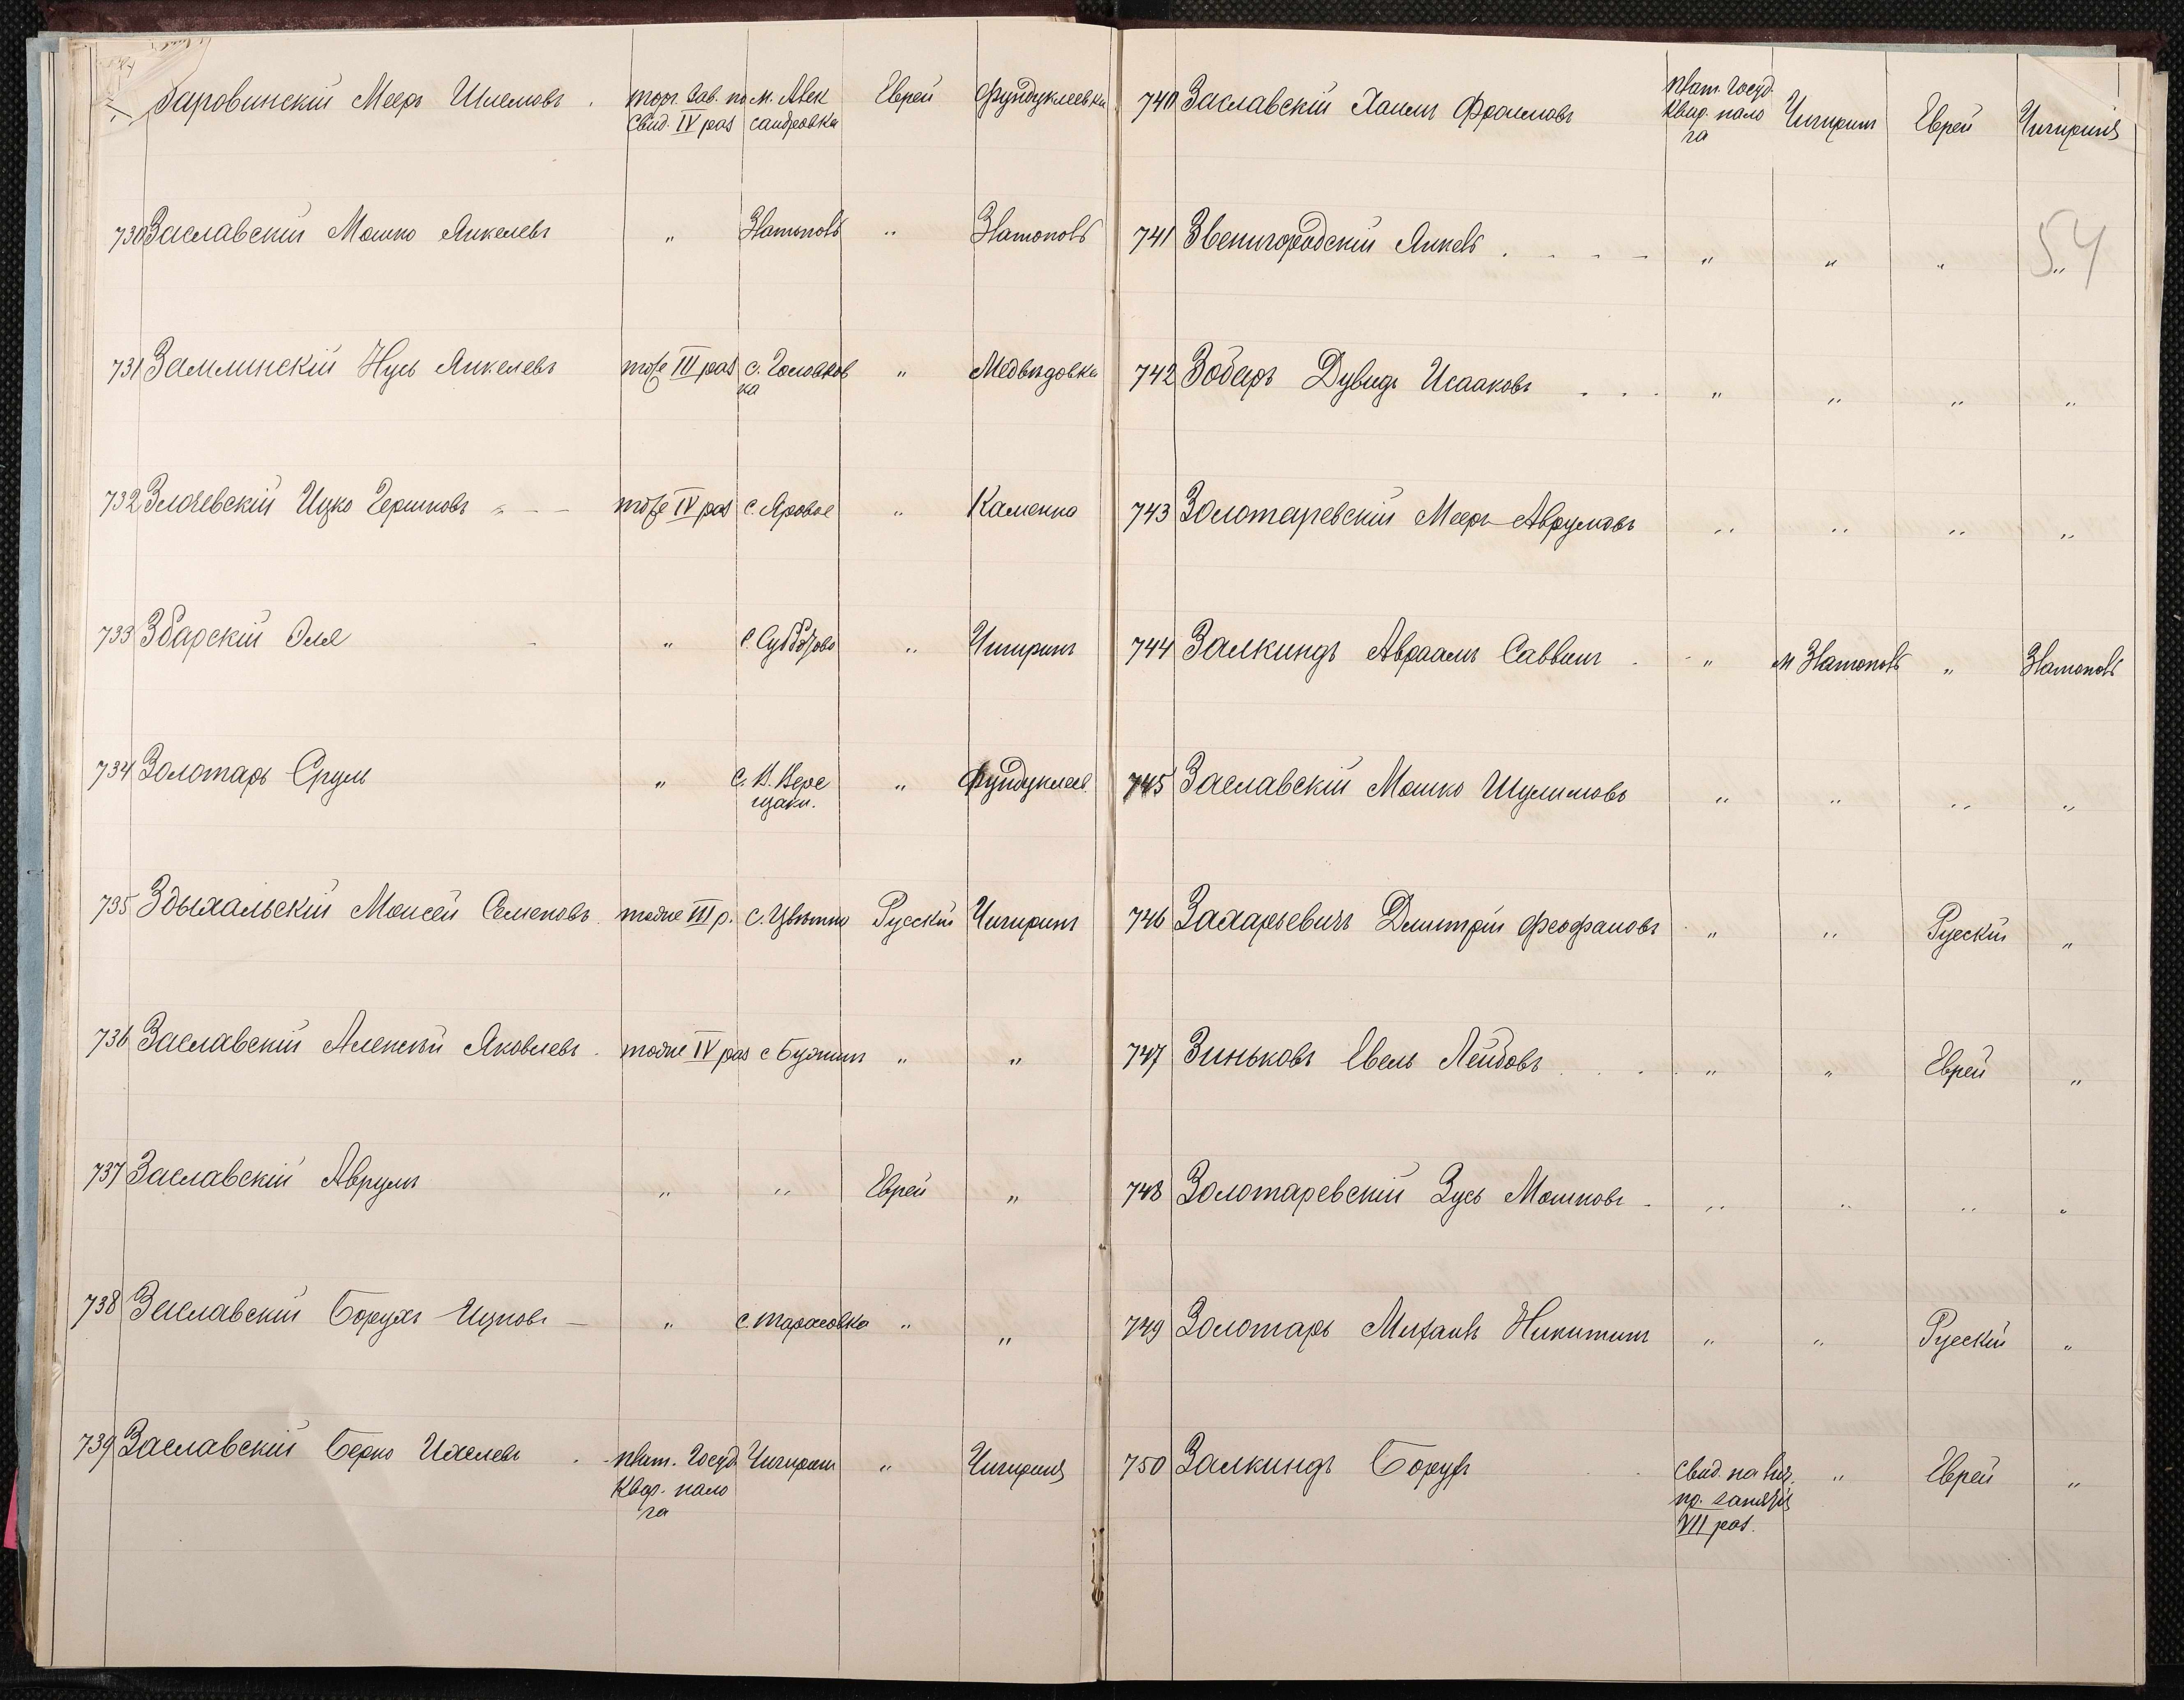 Таровинскій Мееръ Шлемовъ . торг. зав. по м. Алек Еврей Фундуклеевка
свид. IV раз сандровка
730 Заславскій Мошко Янкелевъ " Златополь " Златополь
731 Замлинскій Нусь Янкелевъ тоже III раз с. Головков " Медвѣдовка
ка
732 Злочевскій Ицко Гершковъ тоже IV раз с. Яровое " Каменка
733 Збарскій Эля " с. Субботово " Чигиринъ
734 Золотарь Сруль " с. В. Вере " Фундуклеев.
щаки.
735 Здыхальскій Моисей Семеновъ тоже III р. с. Цвѣтно Русскій Чигиринъ
736 Заславскій Алексѣй Яковлевъ тоже IV раз с Бужинъ " "
737 Заславскій Аврумъ " " Еврей "
738 Заславскій Борухъ Ицковъ " с. Тарасовка " "
739 Заславскій Берко Ихелевъ плат. Госуд Чигиринъ " Чигиринъ
Квар. нало
га
740 Заславскій Хаимъ Фроимовъ плат. Госуд. Чигиринъ Еврей Чигиринъ
Квар. нало
га
54
741 Звенигородскій Янкель " " " "
742 Зобаръ Дувидъ Исааковъ " " " "
743 Золотаревскій Мееръ Аврумовъ " " " "
744 Залкиндъ Авраамъ Саввинъ " м Златополь " Златополь
745 Заславскій Мошко Шулимовъ " " " "
746 Захарьевичъ Дмитрій Феофановъ " " Русскій "
747 Зиньковъ Евель Лейбовъ " " Еврей "
748 Золотаревскій Зусь Мошковъ " " " "
749 Золотарь Михаилъ Никитинъ " " Русскій "
750 Залкиндъ Борухъ свид. на лич. " Еврей "
пр. занятія
VII раз.